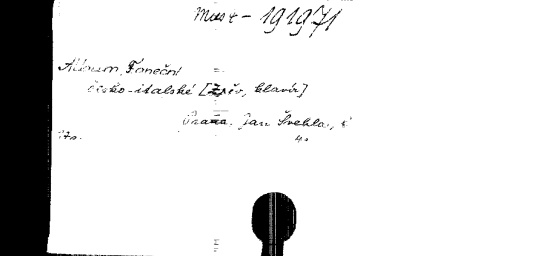 Must - 191971
Album, Taneční
česko-italské [Zpěv, klavír]
Praha. Jan Švehla,
4°